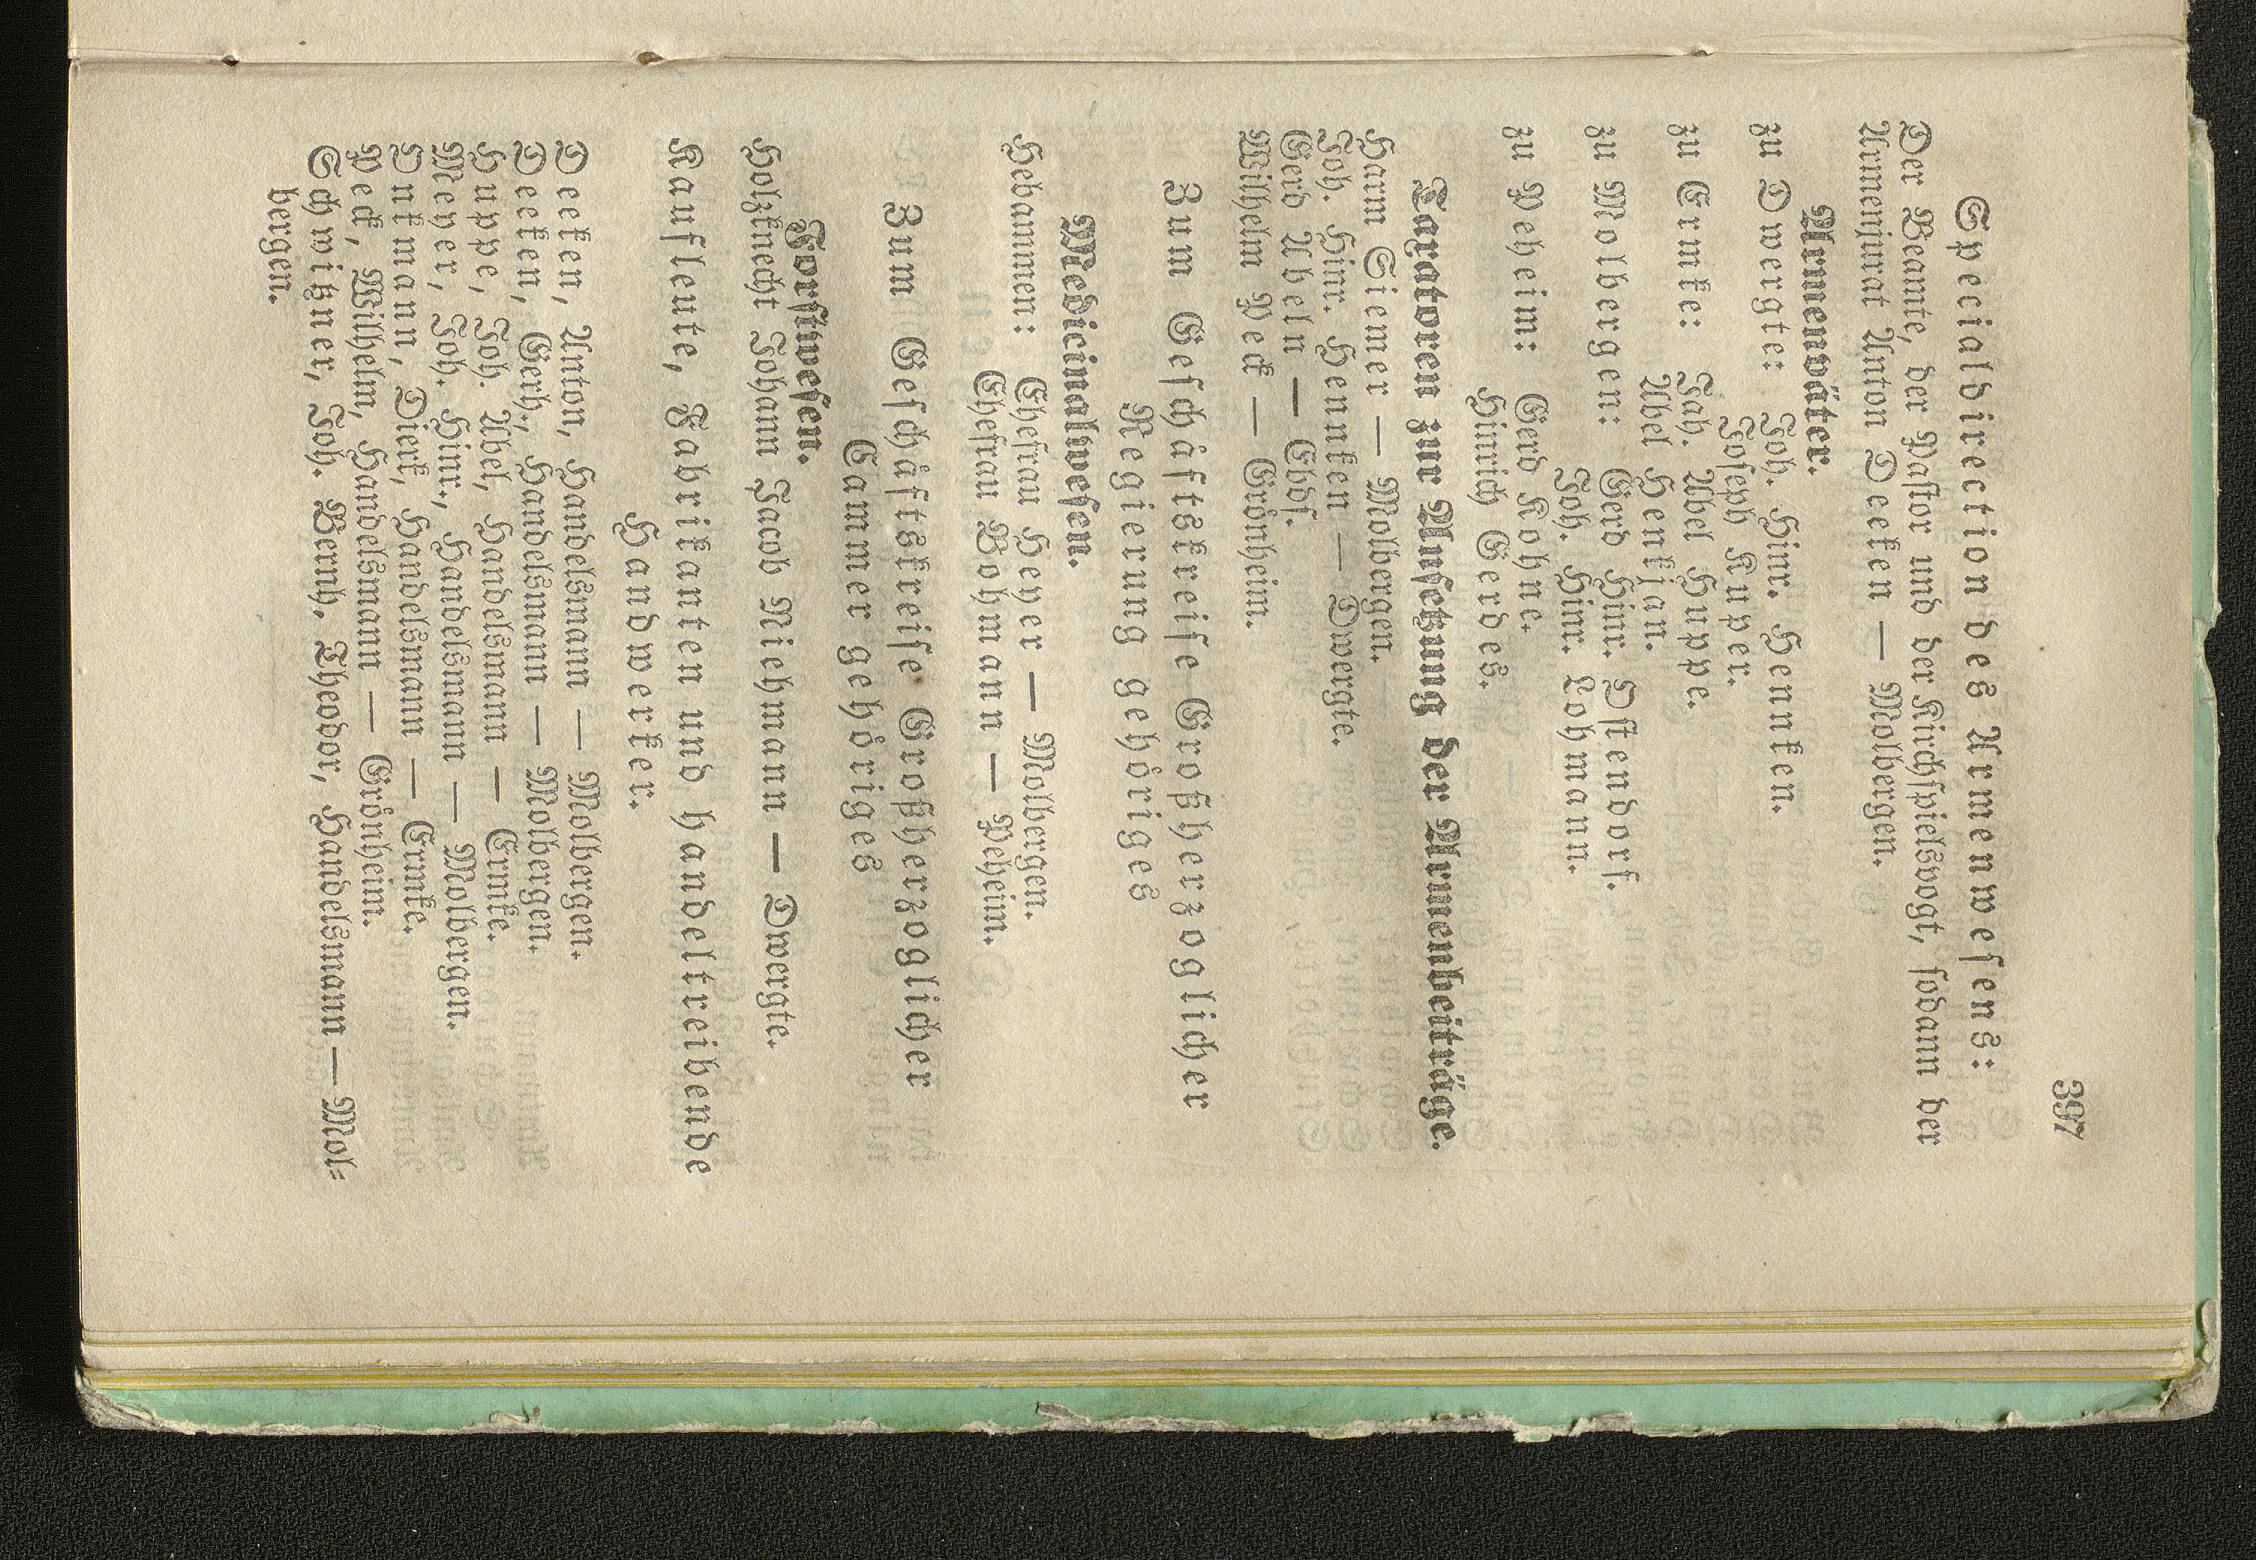 397
Specialdirection des Armenwesens:
Der Beamte, der Pastor und der Kirchspielsvogt, sodann der
Armenjurat Anton Deeken — Molbergen.
Armenväter.
zu Dwergte: Joh. Hinr. Hennken.
Joseph Kuper.
zu Ermke: Joh. Abel Huppe.
Abel Henkjan.
zu Molbergen: Gerd Hinr. Ostendorf.
Joh. Hinr. Lohmann.
zu Peheim: Gerd Kohne.
Hinrich Gerdes.
Taxatoren zur Ansetzung der Armenbeiträge.
Harm Siemer — Molbergen.
Joh. Hinr. Hennken — Dwergte.
Gerd Abeln — Ehöf.
Wilhelm Peck — Grönheim.
Zum Geschäftskreise Großherzoglicher
Regierung gehöriges
Medicinalwesen.
Hebammen: Ehefrau Heyer — Molbergen.
Ehefrau Bohmann — Peheim.
Zum Geschäftskreise Großherzoglicher
Cammer gehöriges
Forstwesen.
Holzknecht Johann Jacob Niehmann — Dwergte.
Kaufleute, Fabrikanten und handeltreibende
Handwerker.
Deeken, Anton, Handelsmann — Molbergen.
Deeken, Gerh., Handelsmann — Molbergen.
Huppe, Joh. Abel, Handelsmann — Ermke.
Meyer, Joh. Hinr., Handelsmann — Molbergen.
Ontmann, Dierk, Handelsmann — Ermke.
Peck, Wilhelm, Handelsmann — Grönheim.
Schwitzner, Joh. Bernh. Theodor, Handelsmann — Mol-
bergen.